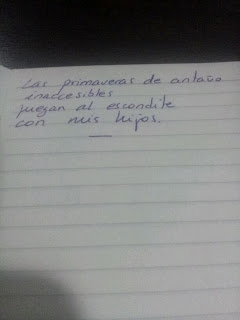 Las primaveras de antaño
inaccesibles
juegan al escondite
con mis hijos.